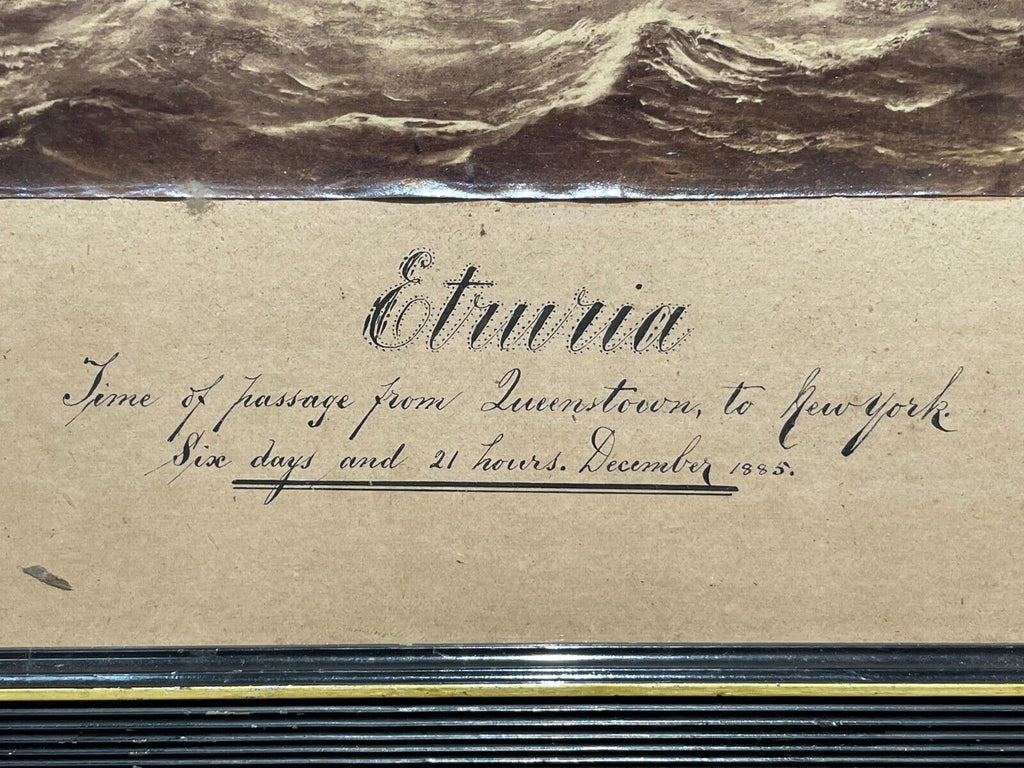 Etruria
Time of passage from Queenstown, to New York.
Six days and 21 hours. December 1885.